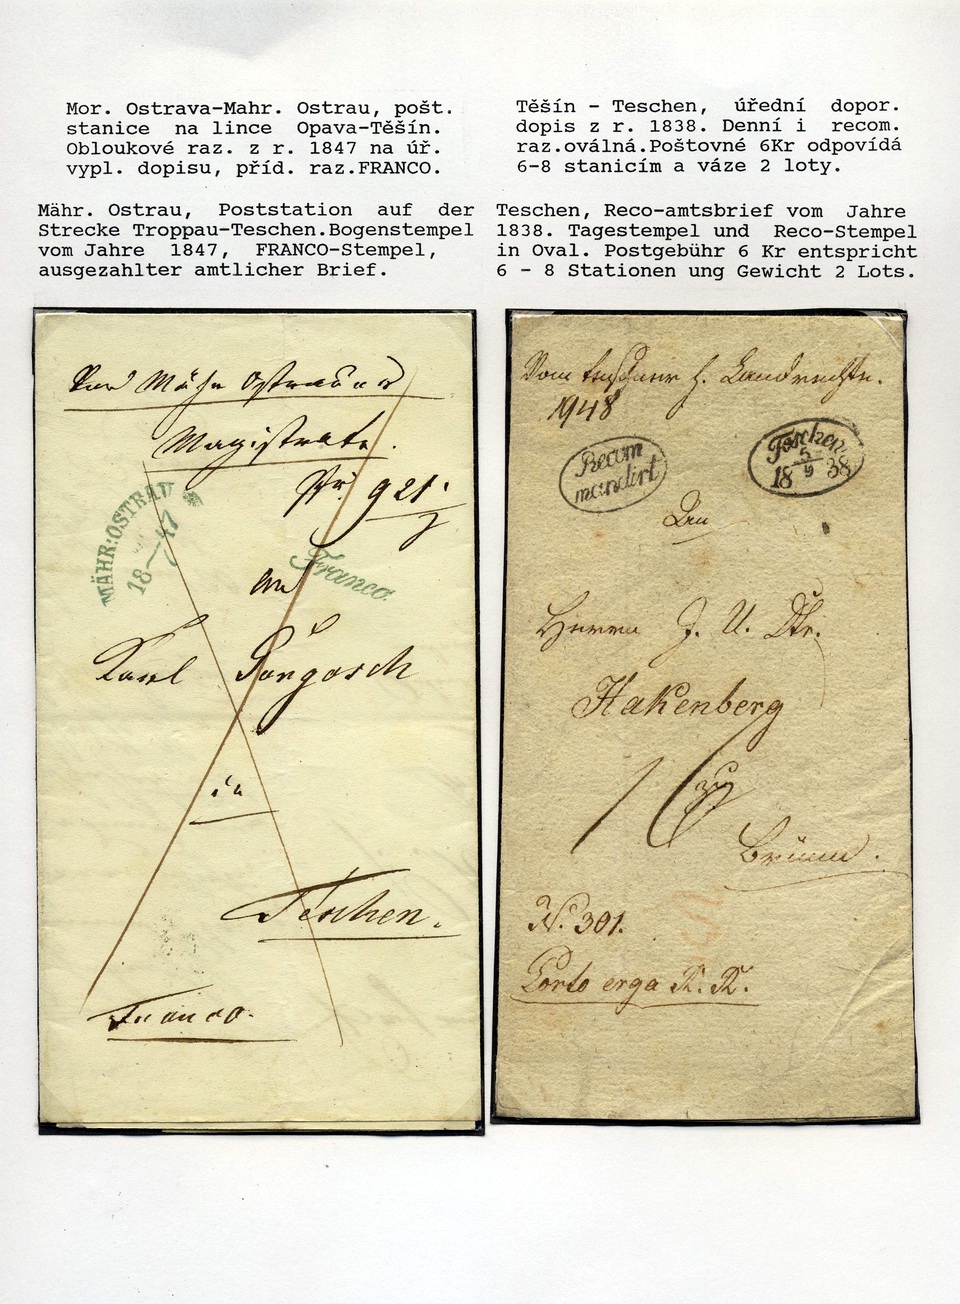 Mor. Ostrava-Mahr. Ostrau, pošt.
stanice na lince Opava-Těšín.
Obloukové raz. z r. 1847 na úř.
vypl. dopisu, příd. raz.FRANCO.
Mähr. Ostrau, Poststation auf der
Strecke Troppau-Teschen.Bogenstempel
vom Jahre 1847, FRANCO-Stempel,
ausgezahlter amtlicher Brief.
Těšín - Teschen, úřední dopor.
dopis z r. 1838. Denní i recom.
raz.oválná.Poštovné 6Kr odpovídá
6-8 stanicím a váze 2 loty.
Teschen, Reco-amtsbrief vom Jahre
1838. Tagestempel und Reco-Stempel
in Oval. Postgebühr 6 Kr entspricht
6 - 8 Stationen ung Gewicht 2 Lots.
Mähr Ostrauer
Magistrate.
Nr. 921
MÄHR:OSTRAU
18 47
Franco.
an
Karl
in
Teschen.
Franco.
Vom Teschner k. Landrechte.
1948
Recom
mandirt
Teschen
5
18 9 38
Den
Herrn J. U. Dr.
Hakenberg
zu
Brünn.
N. 301.
Porto erga R. R.